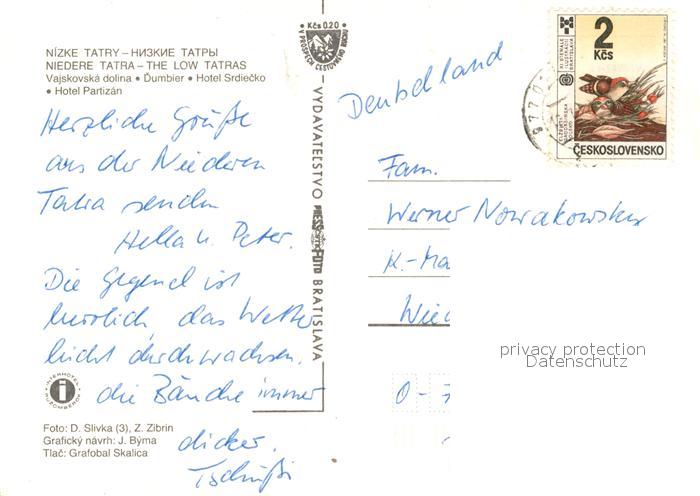 NÍZKE TATRY – НИЗКИЕ ТАТРЫ
NIEDERE TATRA – THE LOW TATRAS
Vajskovská dolina • Ďumbier • Hotel Srdiečko
• Hotel Partizán
Herzliche Grüße
aus der Niederen
Tatra senden
Hella u. Peter.
Die Gegend ist
herrlich das Wetter
leicht durchwachsen.
die Bäuche immer
dicker.
Tschüßi
INTERHOTEL
RUŽOMBEROK
Foto: D. Slivka (3), Z. Zibrin
Grafický návrh: J. Býma
Tlač: Grafobal Skalica
Kčs 0.20
V PROSPECH CESTOVNÉHO RUCHU
VYDAVATEĽSTVO PRESSFOTO BRATISLAVA
Deutschland
2
Kčs
XI BIENÁLE
ILUSTRÁCIÍ
BRATISLAVA
ČESKOSLOVENSKO
9770
Fam.
Werner Nowakowsky
K.-Ma
Wied
O-7
privacy protection
Datenschutz